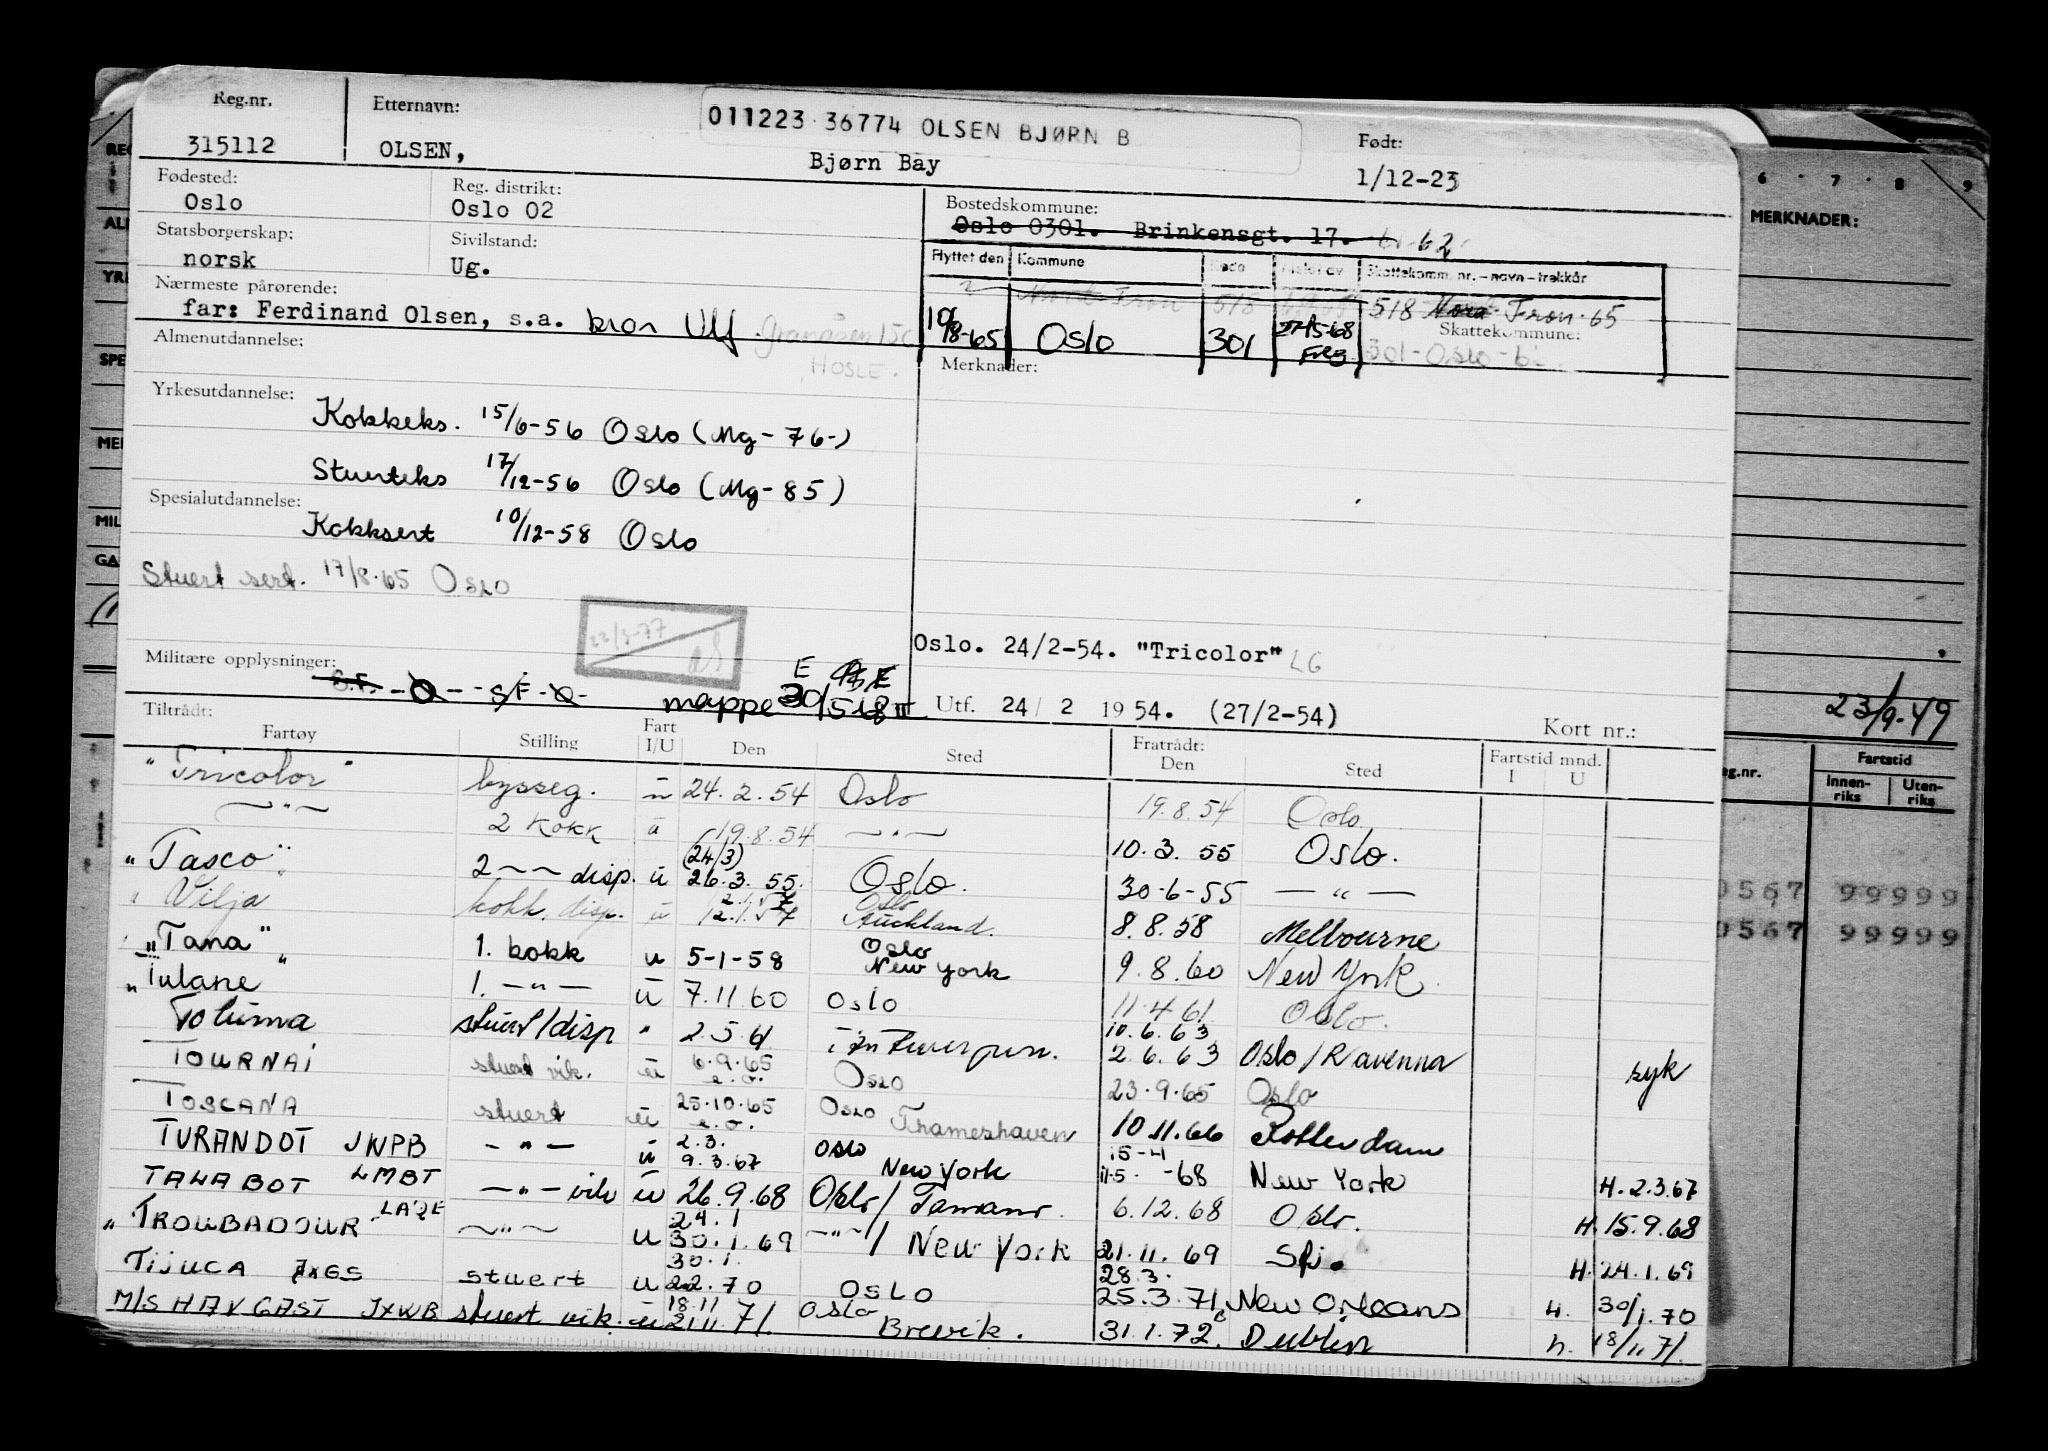 Reg.nr. Etternavn: 011223 36774 OLSEN BJØRN B Født:
315112 OLSEN, Bjørn Bay 1/12-23
Fødested: Reg. distrikt: Bostedskommune:
Oslo Oslo 02 Oslo 0301. Brinkensgt. 17. 62
Statsborgerskap: Sivilstand: Flyttet den Kommune Kode Skattekomm. nr. - navn - trekkår
norsk Ug. 518 Fron 65
Nærmeste pårørende: Skattekommune:
far: Ferdinand Olsen, s.a. bror Ulf Granåsen 15c 10/8-65 Oslo 301 27/5-68 301-Oslo-6
HOSLE.
Almenutdannelse: Merknader:
Yrkesutdannelse:
Kokkeks. 15/6-56 Oslo (Mg-76-)
Stuerteks 17/12-56 Oslo (Mg-85)
Spesialutdannelse:
Kokksert 10/12-58 Oslo
Stuert sert. 17/8-65 Oslo
Oslo. 24/2-54. "Tricolor" LG
Militære opplysninger: mappe 30/518
Utf. 24/2 1954. (27/2-54) Kort nr.:
Tiltrådt: Fratrådt:
Fartøy Stilling Fart I/U Den Sted Den Sted Fartstid mnd. I U
"Tricolor" bysseg. u 24.2.54 Oslo 19.8.54 Oslo
— " — 2 Kokk u 19.8.54 — " — 10.3.55 Oslo.
"Tasco" 2 — — disp. u (24/3) 26.3.55. Oslo. 30-6-55 — " —
"Vilja" kokk. disp. u 12.1.57 Oslo Auckland. 8.8.58 Melbourne
"Tana" 1. kokk u 5-1-58 Oslo New York 9.8.60 New York
"Tulane" 1. — " — u 7.11.60 Oslo 11.4.61 Oslo.
Toluma stuert/disp " 2.5.61 i Antwerpen. 10.6.63 2.6.63 Oslo/Ravenna syk
TOURNAI stuert vik. u 6.9.65 e.o. Oslo 23.9.65 Oslo
TOSCANA stuert u 25.10.65 e.o. Oslo Thameshaven 10.11.66 Rotterdam
TURANDOT JWPB — " — u 2.3. 9.3.67 Oslo New York 15-4 11.5.-68 New York H. 2.3.67
TALABOT LMBT — " — vik u 26.9.68 Oslo/ 6.12.68 Oslo. H. 15.9.68
"TROUBADOUR" — " — u 24.1 30.1.69 — " — / New York 21.11.69 H. 24.1.69
TIJUCA stuert u 30.1. 2.2.70 OSLO 28.3. 25.3.71 New Orleans H. 30/1.70
M/S HAVGAST JXWB stuert vik. u 18.11 21.11.71. Oslo Brevik. 31.1.72. Dublin h. 18/11 71.
6 · 7 · 8 · 9
MERKNADER:
23/9-49
Fartstid
Innenriks Utenriks
0567 99999
9567 99999